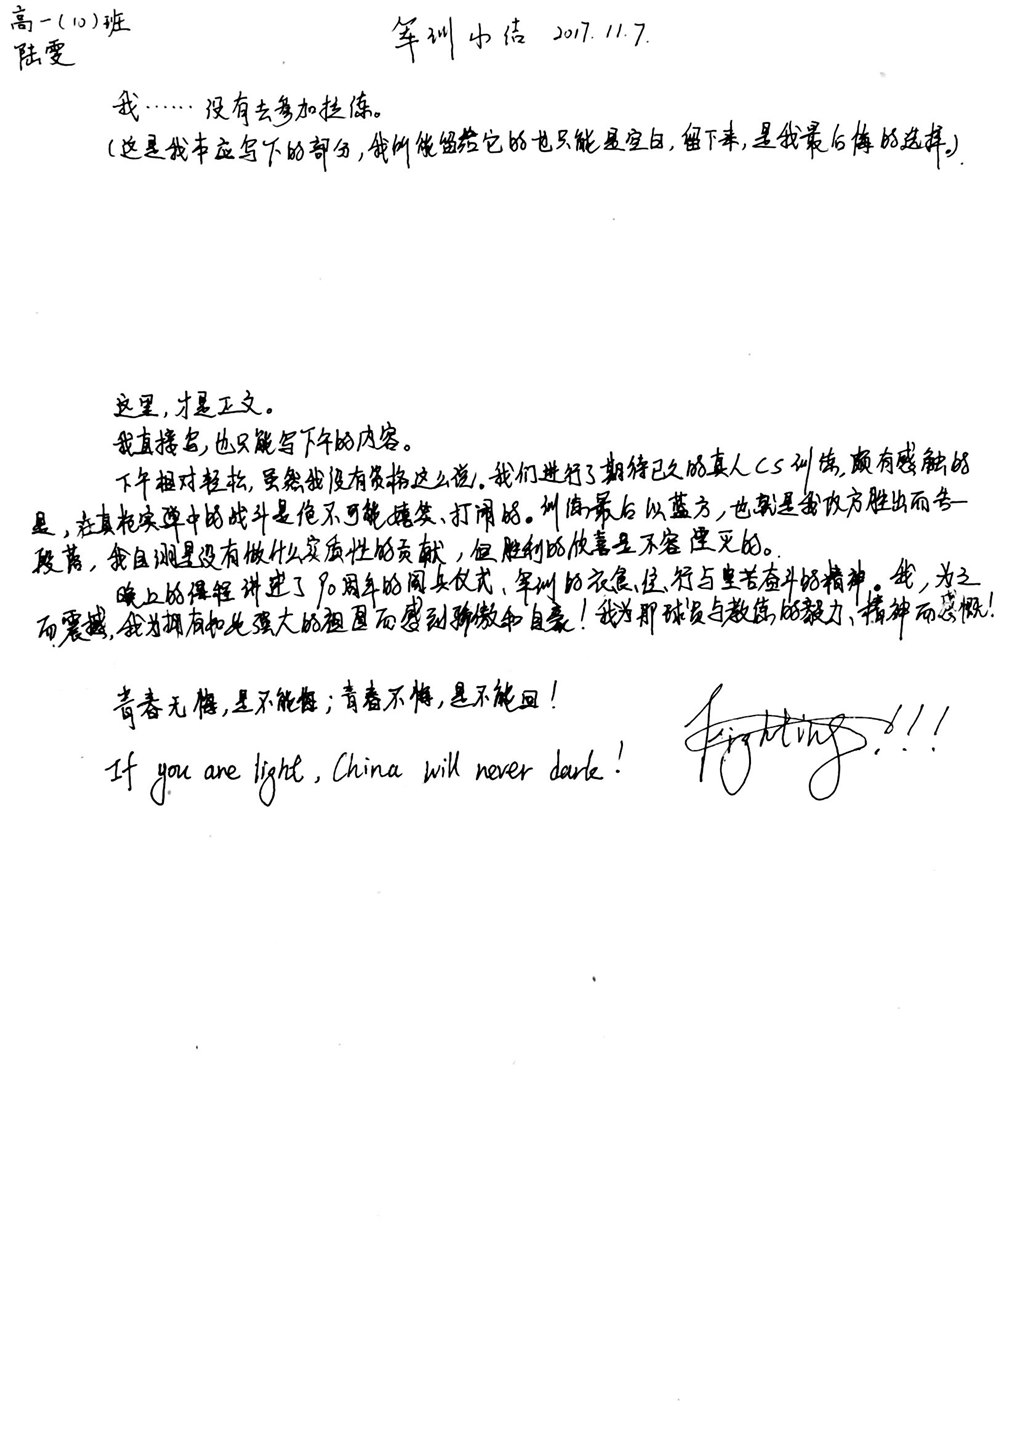 高一(10)班
陆雯
军训小结 2017.11.7.
我……没有去参加拉练。
(这是我本应写下的部分,我所能留给它的也只能是空白,留下来,是我最后悔的选择。)
这里,才是正文。
我直接写,也只能写下午的内容。
下午相对轻松,虽然我没有资格这么说。我们进行了期待已久的真人CS训练,颇有感触的
是,在真枪实弹中的战斗是绝不可能嬉笑、打闹的。训练最后以蓝方,也就是我攻方胜出而告一
段落,我自诩是没有做什么实质性的贡献,但胜利的欣喜是不容湮灭的。
晚上的课程讲述了90周年的阅兵仪式、军训的衣食、住、行与坚苦奋斗的精神。我,为之
而震撼,我为拥有如此强大的祖国而感到骄傲和自豪!我为那球员与教练的毅力、精神而感慨!
青春无悔,是不能悔;青春不悔,是不能回!
If you are light, China will never dark!
Fighting!!!